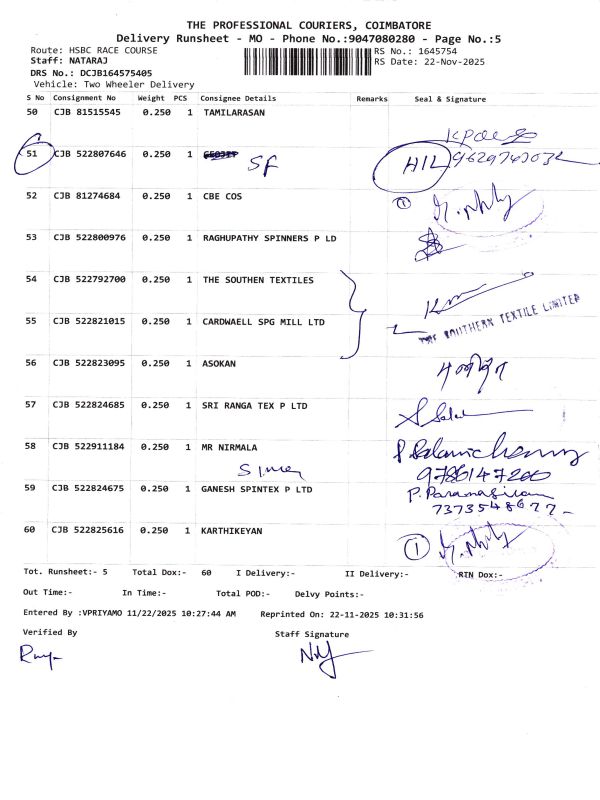 THE PROFESSIONAL COURIERS, COIMBATORE
Delivery Runsheet - MO - Phone No.:9047080280 - Page No.:5
Route: HSBC RACE COURSE RS No.: 1645754
Staff: NATARAJ RS Date: 22-Nov-2025
DRS No.: DCJB164575405
Vehicle: Two Wheeler Delivery
S No Consignment No Weight PCS Consignee Details Remarks Seal & Signature
50 CJB 81515545 0.250 1 TAMILARASAN
51 CJB 522807646 0.250 1 SF HIL
52 CJB 81274684 0.250 1 CBE COS 1
53 CJB 522800976 0.250 1 RAGHUPATHY SPINNERS P LD
54 CJB 522792700 0.250 1 THE SOUTHEN TEXTILES
55 CJB 522821015 0.250 1 CARDWAELL SPG MILL LTD THE SOUTHERN TEXTILE LIMITED
56 CJB 522823095 0.250 1 ASOKAN
57 CJB 522824685 0.250 1 SRI RANGA TEX P LTD
58 CJB 522911184 0.250 1 MR NIRMALA
9786147200
59 CJB 522824675 1 0.250 1 GANESH SPINTEX P LTD P. Paramasivam
7373548677
60 CJB 522825616 0.250 1 KARTHIKEYAN 1
Tot. Runsheet:- 5 Total Dox:- 60 I Delivery:- II Delivery:- RTN Dox:-
Out Time:- In Time:- Total POD:- Delvy Points:-
Entered By :VPRIYAMO 11/22/2025 10:27:44 AM Reprinted On: 22-11-2025 10:31:56
Verified By Staff Signature